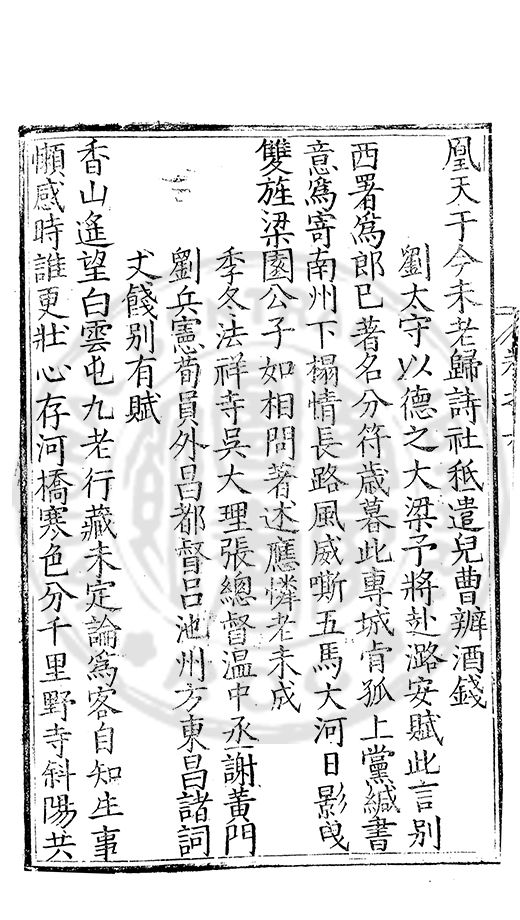 凰天于今未老歸詩社秖遣兒曹辦酒錢
劉太守以德之大梁予將赴潞安賦此言別
西署為郎已著名分符歲暮此專城肯孤上黨緘書
意為寄南州下榻情長路風威嘶五馬大河日影曳
雙旌梁園公子如相問著述應憐老未成
季冬法祥寺吳大理張總督溫中丞謝黃門
劉兵憲荀員外昌都督呂池州方東昌諸詞
丈餞別有賦
香山遙望白雲屯九老行藏未定論為客自知生事
懶感時誰更壯心存河橋寒色分千里野寺斜陽共